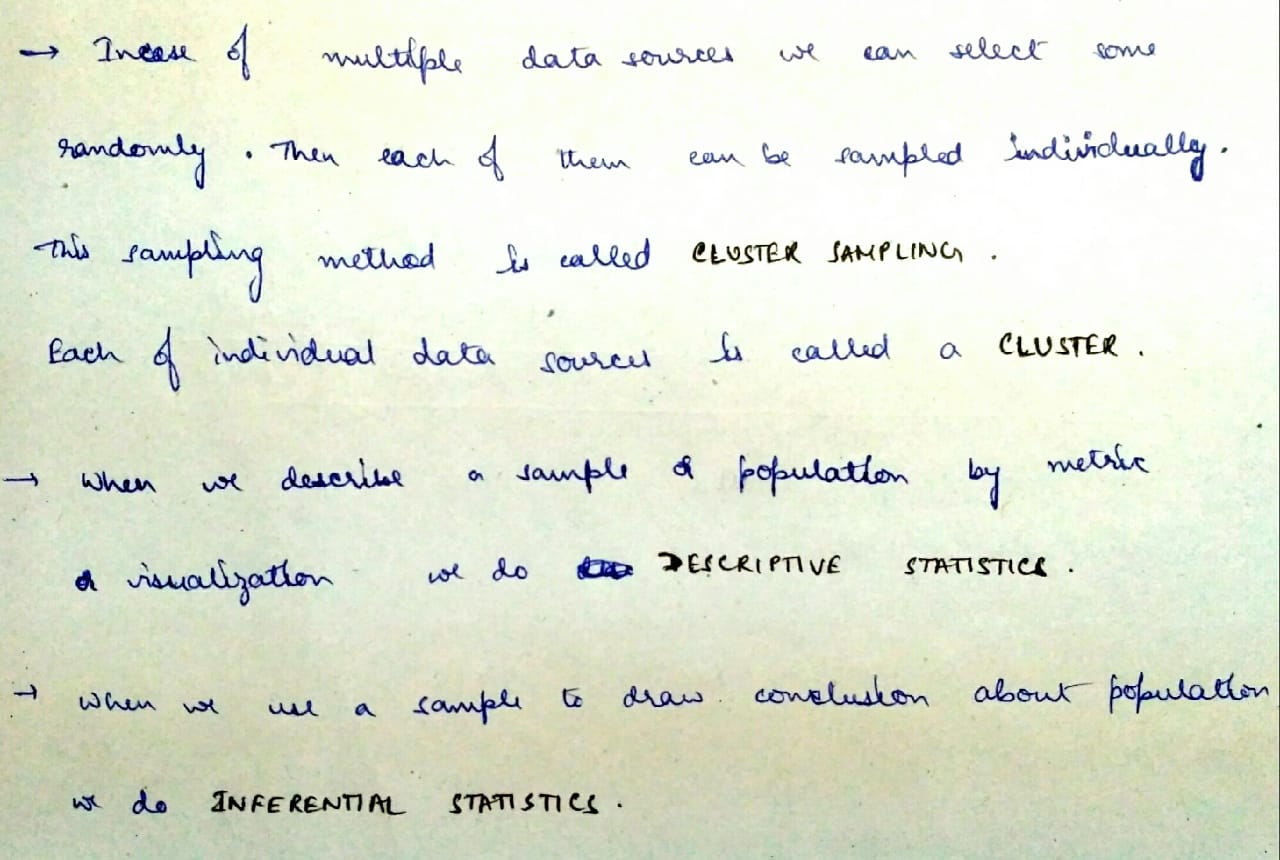 → Incase of multiple data sources we can select some
randomly. Then each of them can be sampled individually.
This sampling method is called CLUSTER SAMPLING.
Each of individual data sources is called a CLUSTER.
→ When we describe a sample or population by metric
or visualization we do DESCRIPTIVE STATISTICS.
→ When we use a sample to draw conclusion about population
we do INFERENTIAL STATISTICS.